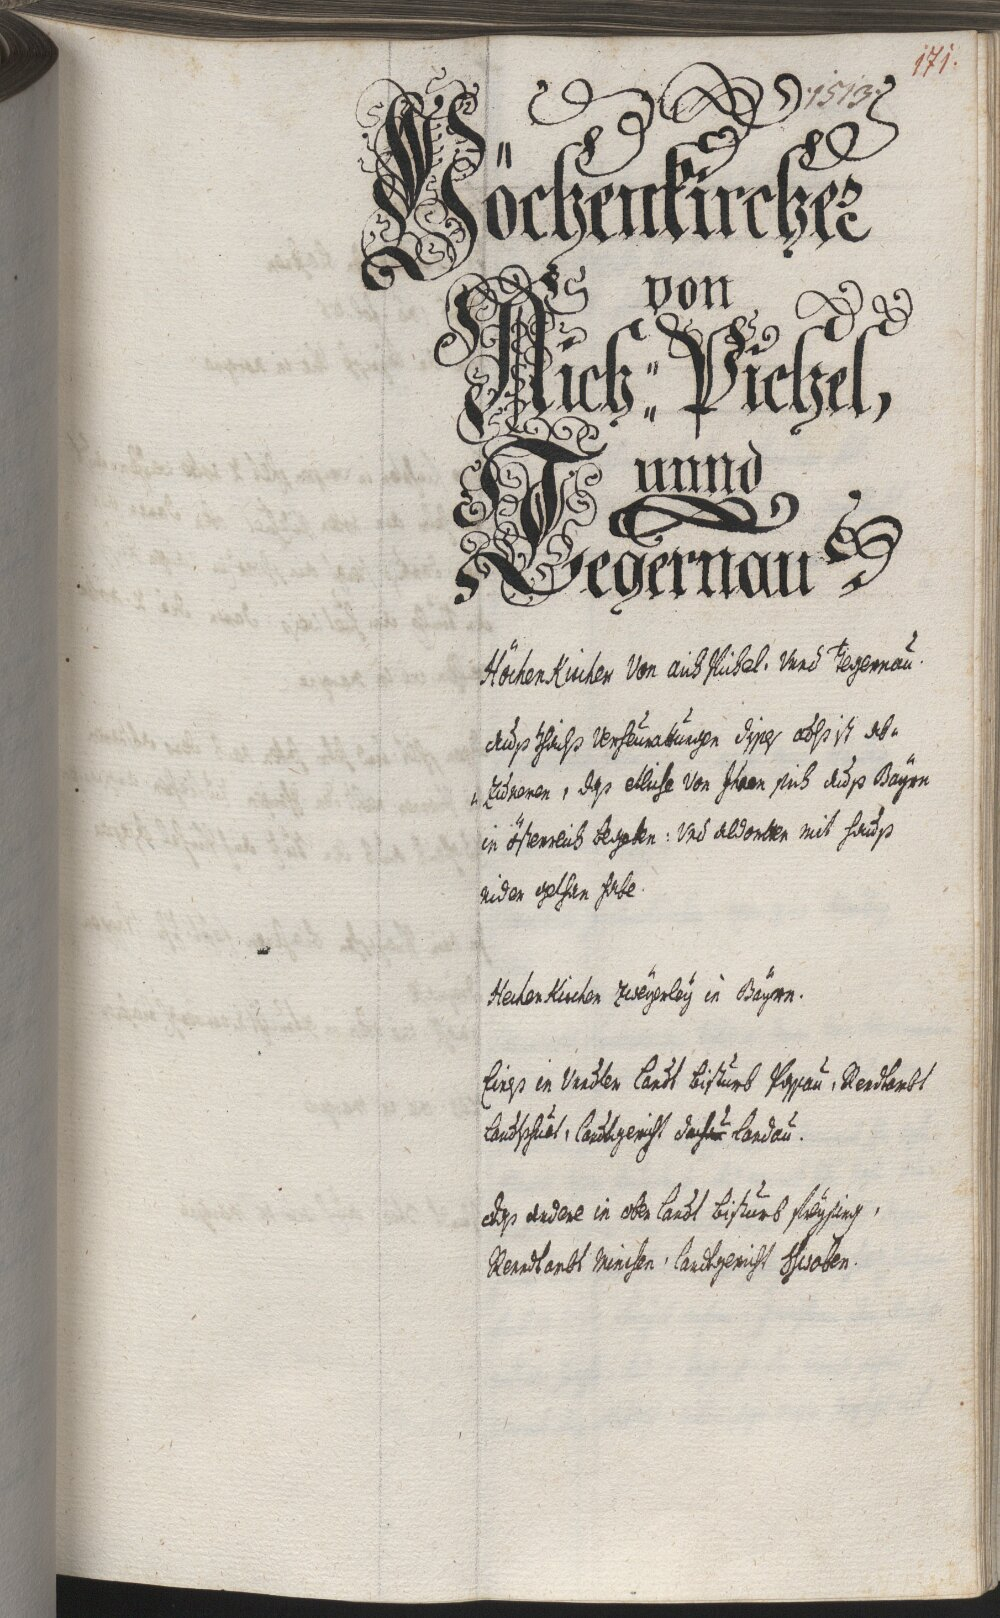 171.
1513.
Höchenkircher
von
Aich. Pichel,
unnd
Tegernau
HöchenKircher Von aich Pichel. Vnnd Tegernau.
Auss Verheuratungen diser ist ab„
„Zunemen, das etliche Von Ihnen sich auss Bayrn
in österreich begeben: Vnd aldorten mit hauss
nider gethan habe.
HechenKirchen Zweÿerleÿ in Baÿrn.
Eines in Vnndter Landt Bistumb Passau, Renndtambt
Landtshuet, Landtgericht Landau.
das andere in ober Landt Bistumb Freÿsing,
Renndtambt Minichen, Landtgericht Schwaben.